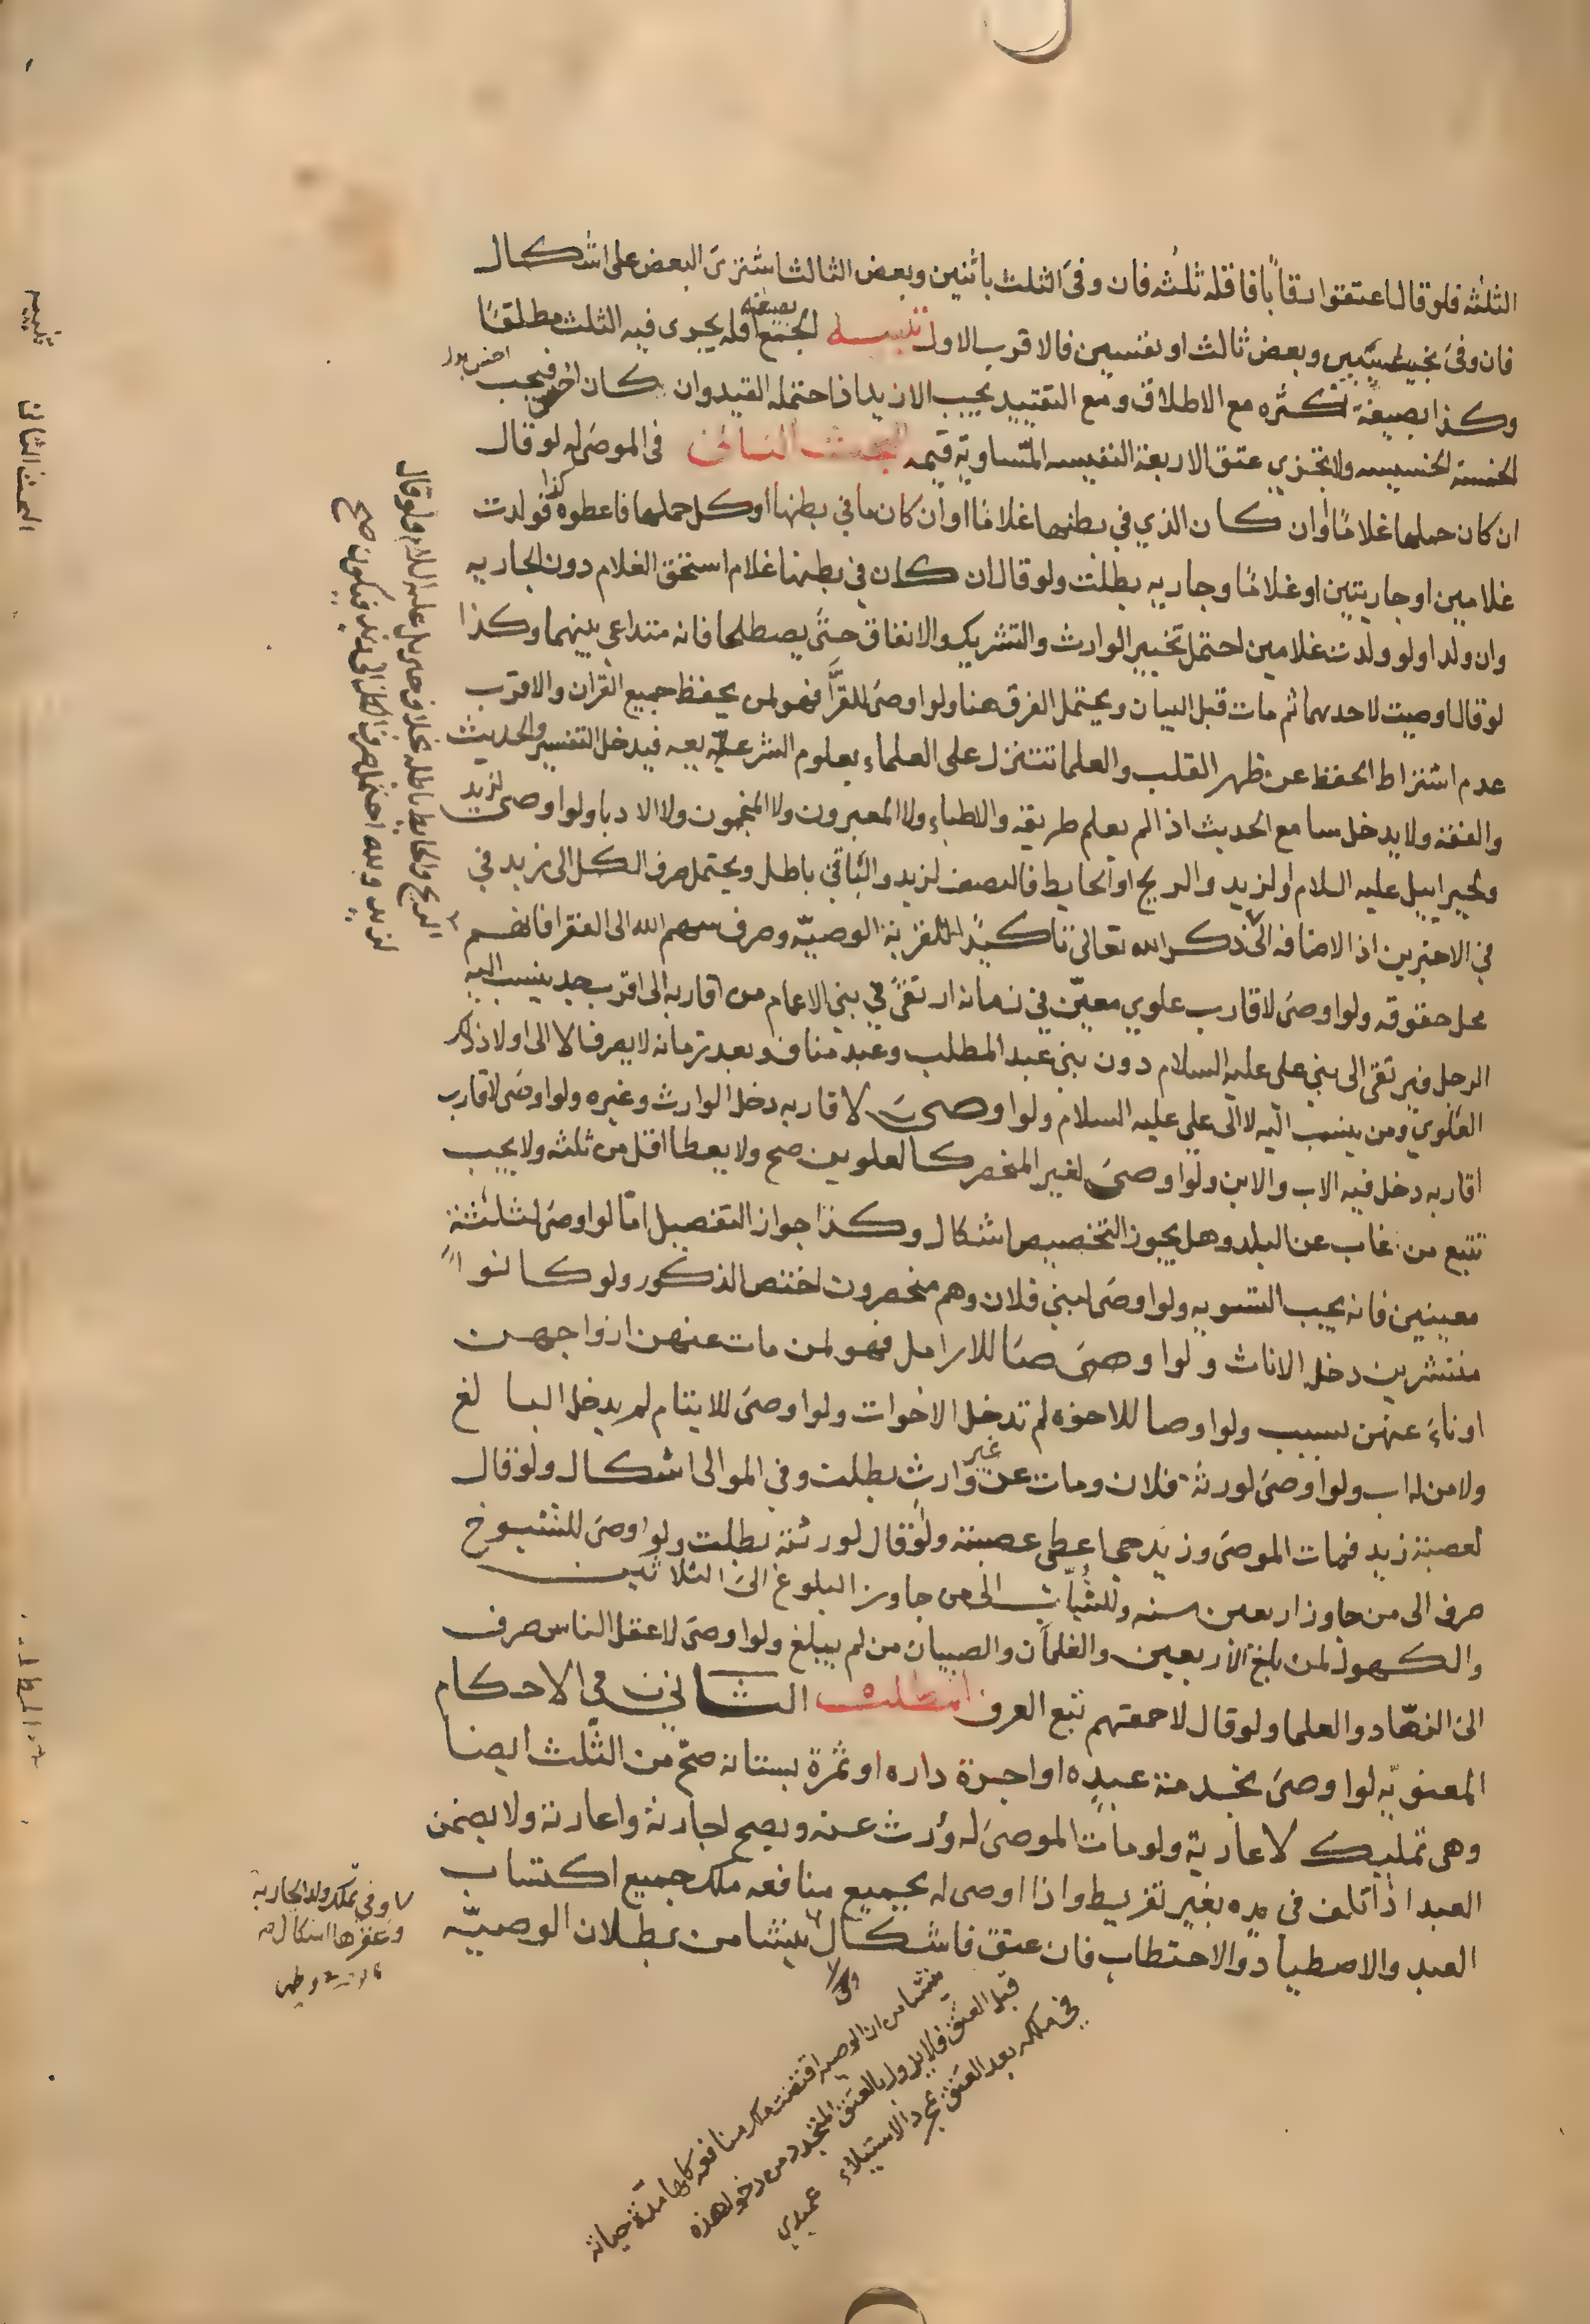 الثلثه فلو قال اعتقوا رقاباً فاقله ثلثه فان وفى الثلث باثنين وبعض الثالث اشترى البعض على اشكال
فان وفى بخسيسين وبعض ثالث او نفيسين فالاقرب الاول تنبيه لجمع بصيغة اقله يجرى فيه الثلث مطلقا
وكذا بصيغة تكثره مع الاطلاق ومع التقييد يجب الازيد اذا احتمله القيد وان كان اخس فيجب
الخمسة الخسيسه ولا يجزي عتق الاربعة النفيسه المتساوية قيمه البحث الثانى فى الموصى له لو قال
ان كان حملها غلامًا او ان كان الذي في بطنها غلامًا او ان كان ما في بطنها او كل حملها فاعطوه كذا فولدت
غلامين او جاريتين او غلامًا وجاريه بطلت ولو قال ان كان في بطنها غلام استحق الغلام دون الجاريه
وان ولدا ولو ولدت غلامين احتمل تخيير الوارث والتشريك والانفاق حتى يصطلحا فانه متداعي بينهما وكذا
لو قال اوصيت لاحدهما ثم مات قبل البيان ويحتمل الفرق هنا ولو اوصى للقرّاء فهو لمن يحفظ جميع القران والاقرب
عدم اشتراط الحفظ عن ظهر القلب والعلما تتنزل على العلماء بعلوم الشرعيه فيدخل التفسير والحديث
والفقه ولا يدخل سامع الحديث اذا لم يعلم طريقه والاطباء ولا المعبرون ولا المنجمون ولا الادبا ولو اوصى لزيد
ولجبرائيل عليه السلام او لزيد والريح او الحايط فالنصف لزيد والباقي باطل ويحتمل صرف الكل الى زيد في
في الاخيرين اذ الاضافه الى ذكر الله تعالى تاكيدًا للقربة الوصيّه وصرف سهم الله الى الفقرا فانهم
محل حقوقه ولو اوصى لاقارب علوي معيّن في زمانه ارتقى في بني الاعمام من اقاربه الى اقرب جد ينسب اليه
الرجل فيرتقى الى بني على عليه السلام دون بني عبد المطلب وعبد مناف وبعد زمانه لا يصرف الا الى اولاد ذلك
العلوي ومن ينسب اليه لا الى علي عليه السلام ولو اوصى لاقاربه دخل الوارث وغيره ولو اوصى لاقارب
اقاربه دخل فيه الاب والابن ولو اوصى لغير المنحصر كالعلويين صح ولا يعطا اقل من ثلثه ولا يجب
تتبع من غاب عن البلد وهل يجوز التخصيص اشكال وكذا جواز التفضيل امّا لو اوصى لثلثة
معينين فانه يجب التسويه ولو اوصى لبني فلان وهم منحصرون اختص الذكور ولو كانوا
منتشرين دخل الاناث ولو اوصى للارامل فهو لمن مات عنهن ازواجهن
او ناى عنهن بسبب ولو اوصا للاخوة لم تدخل الاخوات ولو اوصى للايتام لم يدخل البالغ
ولا من له اب ولو اوصى لورثة فلان ومات عن غير وارث بطلت وفي الموالى اشكال ولو قال
لعصبة زيد فمات الموصى وزيد حي اعطى عصبته ولو قال لورثته بطلت ولو اوصى للشيوخ
صرف الى من جاوز اربعين سنه وللشبّان الى من جاوز البلوغ الى الثلاثين
والكهول لمن بلغ الاربعين والغلمان والصبيان من لم يبلغ ولو اوصى لاعقل الناس صرف
الى الزهّاد والعلما ولو قال لاحمقهم تبع العرف المطلب الثاني في الاحكام
المعنويّه لو اوصى بخدمة عبده او اجرة داره او ثمرة بستانه صح من الثلث ايضا
وهى تمليك لا عارية ولو مات الموصى له ورث عنه ويصح اجارته واعارته ولا يضمن
العبد اذا تلف في يده بغير تفريط واذا اوصى له بجميع منافعه ملك جميع اكتساب
العبد والاصطياد والاحتطاب فان عتق فاشكال ينشا من بطلان الوصيّه
وفي تملك ولد الجارية
وعقرها اشكال
ينشا من ان الوصيه اقتضت ملك منافعه كلها مدة حياته
قبل العتق فلا يزول بالعتق المتجدد من دخول هذه
في ملكه بعد العتق بمجرد الاستيلاء عميدي
تنبيه
البحث الثانى